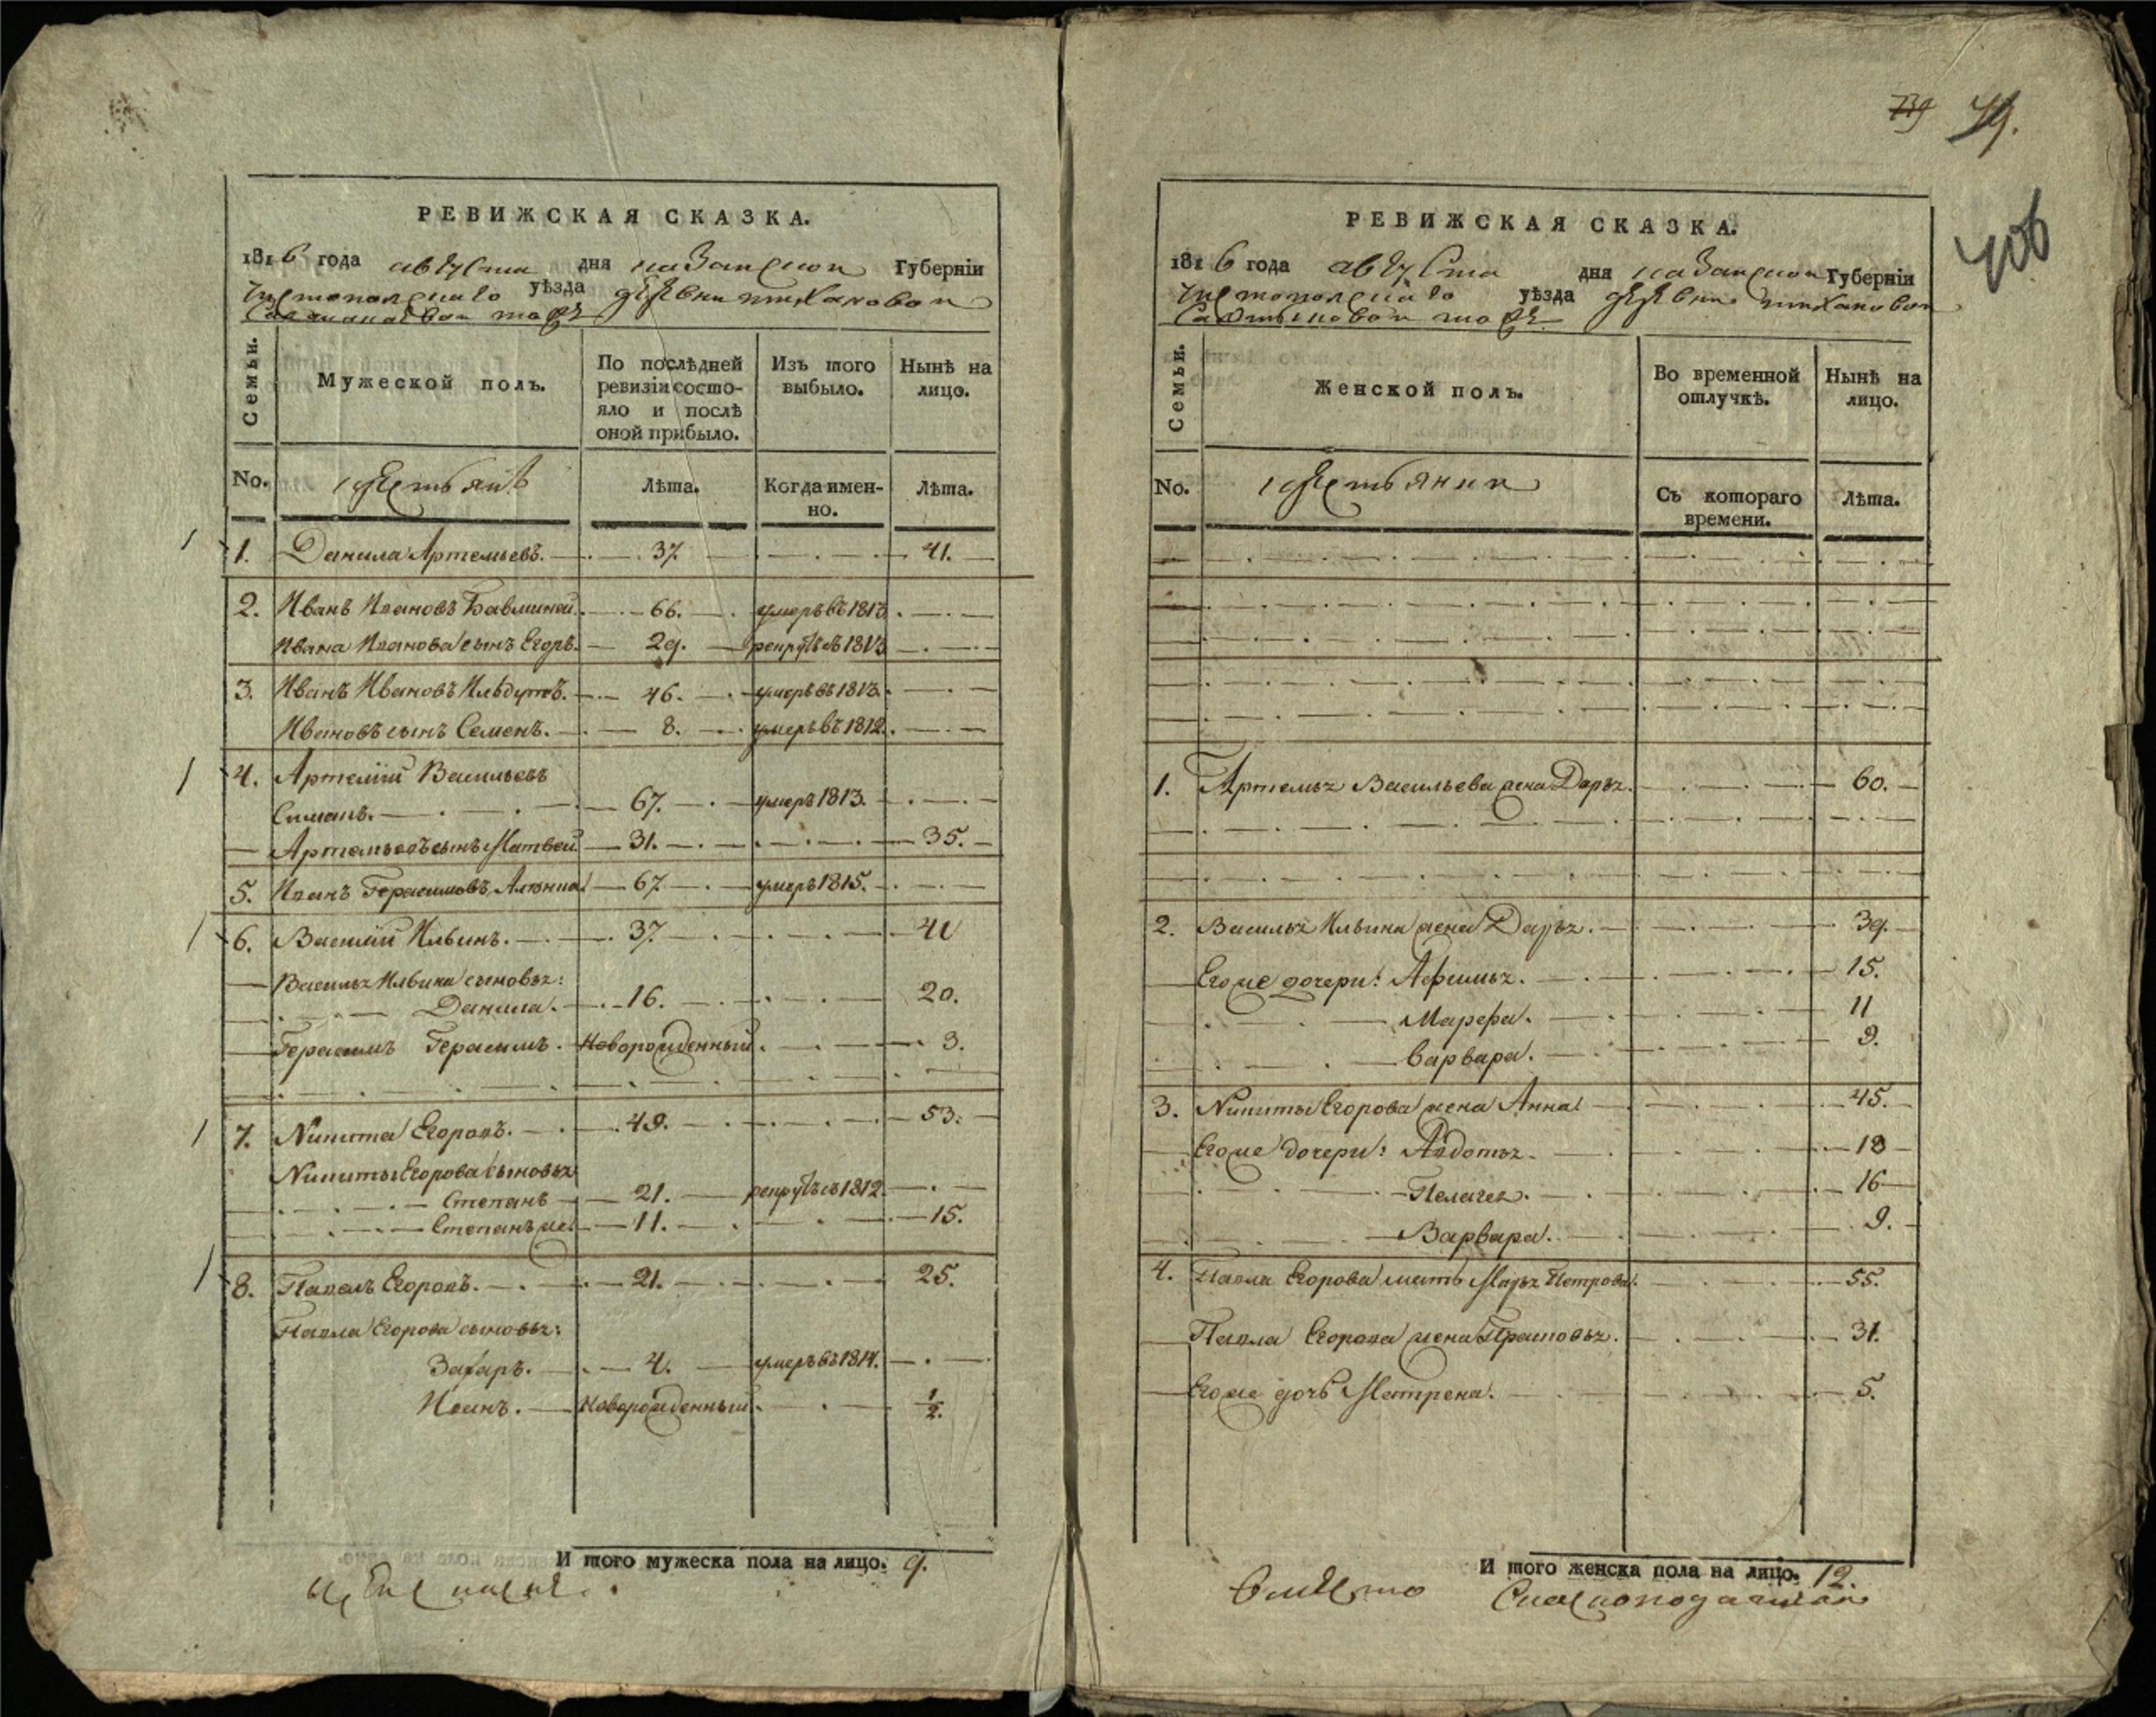 РЕВИЖСКАЯ СКАЗКА.
1816 года августа дня казанской Губерніи
уѣзда деревни
Семьи.
Мужеской полъ.
По послѣдней ревизіи состояло и послѣ оной прибыло.
Изъ того выбыло.
Нынѣ на лицо.
No.
крестьянъ
Лѣта.
Когда именно.
Лѣта.
1. Данила Артемьевъ. 37. 41.
2. Иванъ Ивановъ 66. умеръ въ 1813
Ивана Иванова сынъ Егоръ. 29. рекрутъ въ 1813
3. Иванъ Ивановъ 46. умеръ въ 1813.
Ивановъ сынъ Семенъ. 8. умеръ въ 1812.
4. Артемій Васильевъ
67. умеръ 1813.
Артемьевъ сынъ Матвей 31. 35.
5. Иванъ Герасимовъ 67 умеръ 1815.
6. Василій Ильинъ. 37. 41
Василья Ильина сыновья:
Данила. 16. 20.
Герасимъ Герасимъ. Новорожденный. 3.
7. Никита Егоровъ. 49. 53.
Никиты Егорова сыновья
Степанъ 21. рекрутъ въ 1812.
Степанъ же 11. 15.
8. Павелъ Егоровъ. 21. 25.
Павла Егорова сыновья:
Захаръ. 4. умеръ въ 1814.
Новорожденный 1/2.
И того мужеска пола на лицо. 9.
739 79.
406
РЕВИЖСКАЯ СКАЗКА.
1816 года августа дня казанской Губерніи
уѣзда деревни
Семьи.
Женской полъ.
Во временной отлучкѣ.
Нынѣ на лицо.
No.
Съ котораго времени.
Лѣта.
1. Артемья Васильева жена Дарья. 60.
2. Василья Ильина жена Дарья. 39.
Его же дочери: Афимья. 15.
Марефа. 11
Варвара. 9.
3. Никиты Егорова жена Анна 45.
Его же дочери: Авдотья. 18
Пелагея. 16
Варвара. 9.
4. Павла Егорова мать Марья Петрова. 55.
Павла Егорова жена Прасковья. 31.
Его же дочь Матрена. 5.
И того женска пола на лицо. 12.
вместо